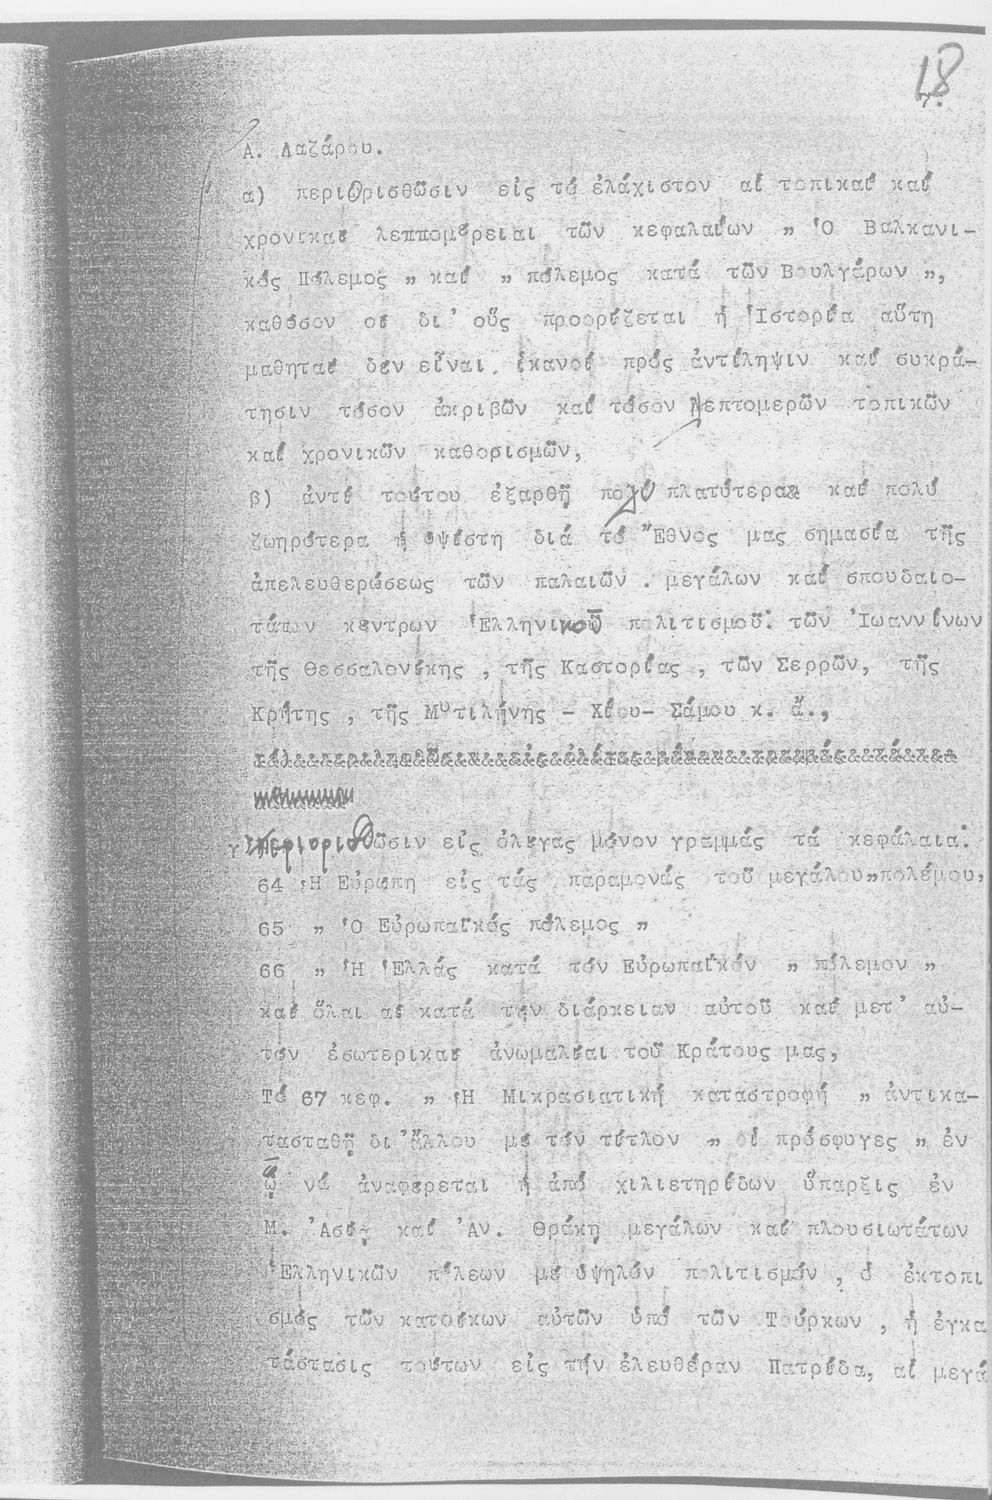 18
7.
Α. Λαζάρου.
α) περιορισθῶσιν εἰς τό ἐλάχιστον αἱ τοπικαί καί
χρονικαί λεππομέρειαι τῶν κεφαλαίων „ Ὁ Βαλκανι-
κός Πόλεμος „ καί „ πόλεμος κατά τῶν Βουλγάρων „,
καθόσον οἱ δι' οὕς προορίζεται ἡ Ἱστορία αὕτη
μαθηταί δέν εἶναι ἱκανοί πρός ἀντίληψιν καί συκρά-
τησιν τόσον ἀκριβῶν καί τόσον λεπτομερῶν τοπικῶν
καί χρονικῶν καθορισμῶν,
β) ἀντί τούτου ἐξαρθῇ πολύ πλατύτερα καί πολύ
ζωηρότερα ἡ ὑψίστη διά τό Ἔθνος μας σημασία τῆς
ἀπελευθερώσεως τῶν παλαιῶν . μεγάλων καί σπουδαιο-
τάτων κέντρων Ἑλληνικοῦ πολιτισμοῦ: τῶν Ἰωαννίνων
τῆς Θεσσαλονίκης , τῆς Καστορίας , τῶν Σερρῶν, τῆς
Κρήτης , τῆς Μυτιλήνης – Χίου– Σάμου κ. ἄ.,
γ) περιορισθῶσιν εἰς ὀλίγας μόνον γραμμάς τά κεφάλαια:
64 Ἡ Εὐρώπη εἰς τάς παραμονάς τοῦ μεγάλου„πολέμου,
65 „ Ὁ Εὐρωπαϊκός πόλεμος „
66 „ Ἡ Ἑλλάς κατά τόν Εὐρωπαϊκόν „ πόλεμον „
καί ὅλαι αἱ κατά τήν διάρκειαν αὐτοῦ καί μετ' αὐ-
τόν ἐσωτερικαί ἀνωμαλίαι τοῦ Κράτους μας,
Τό 67 κεφ. „ Ἡ Μικρασιατική καταστροφή „ ἀντικα-
τασταθῇ δι'ἄλλου μέ τόν τίτλον „ οἱ πρόσφυγες „ ἐν
ᾧ νά ἀναφέρεται ἡ ἀπό χιλιετηρίδων ὕπαρξις ἐν
Μ. Ἀσίᾳ καί Ἀν. Θράκῃ μεγάλων καί πλουσιωτάτων
Ἑλληνικῶν πόλεων μέ ὑψηλόν πολιτισμόν , ὁ ἐκτοπι
σμός τῶν κατοίκων αὐτῶν ὑπό τῶν Τούρκων , ἡ ἐγκα
τάστασις τούτων εἰς τήν ἐλευθέραν Πατρίδα, αἱ μεγά